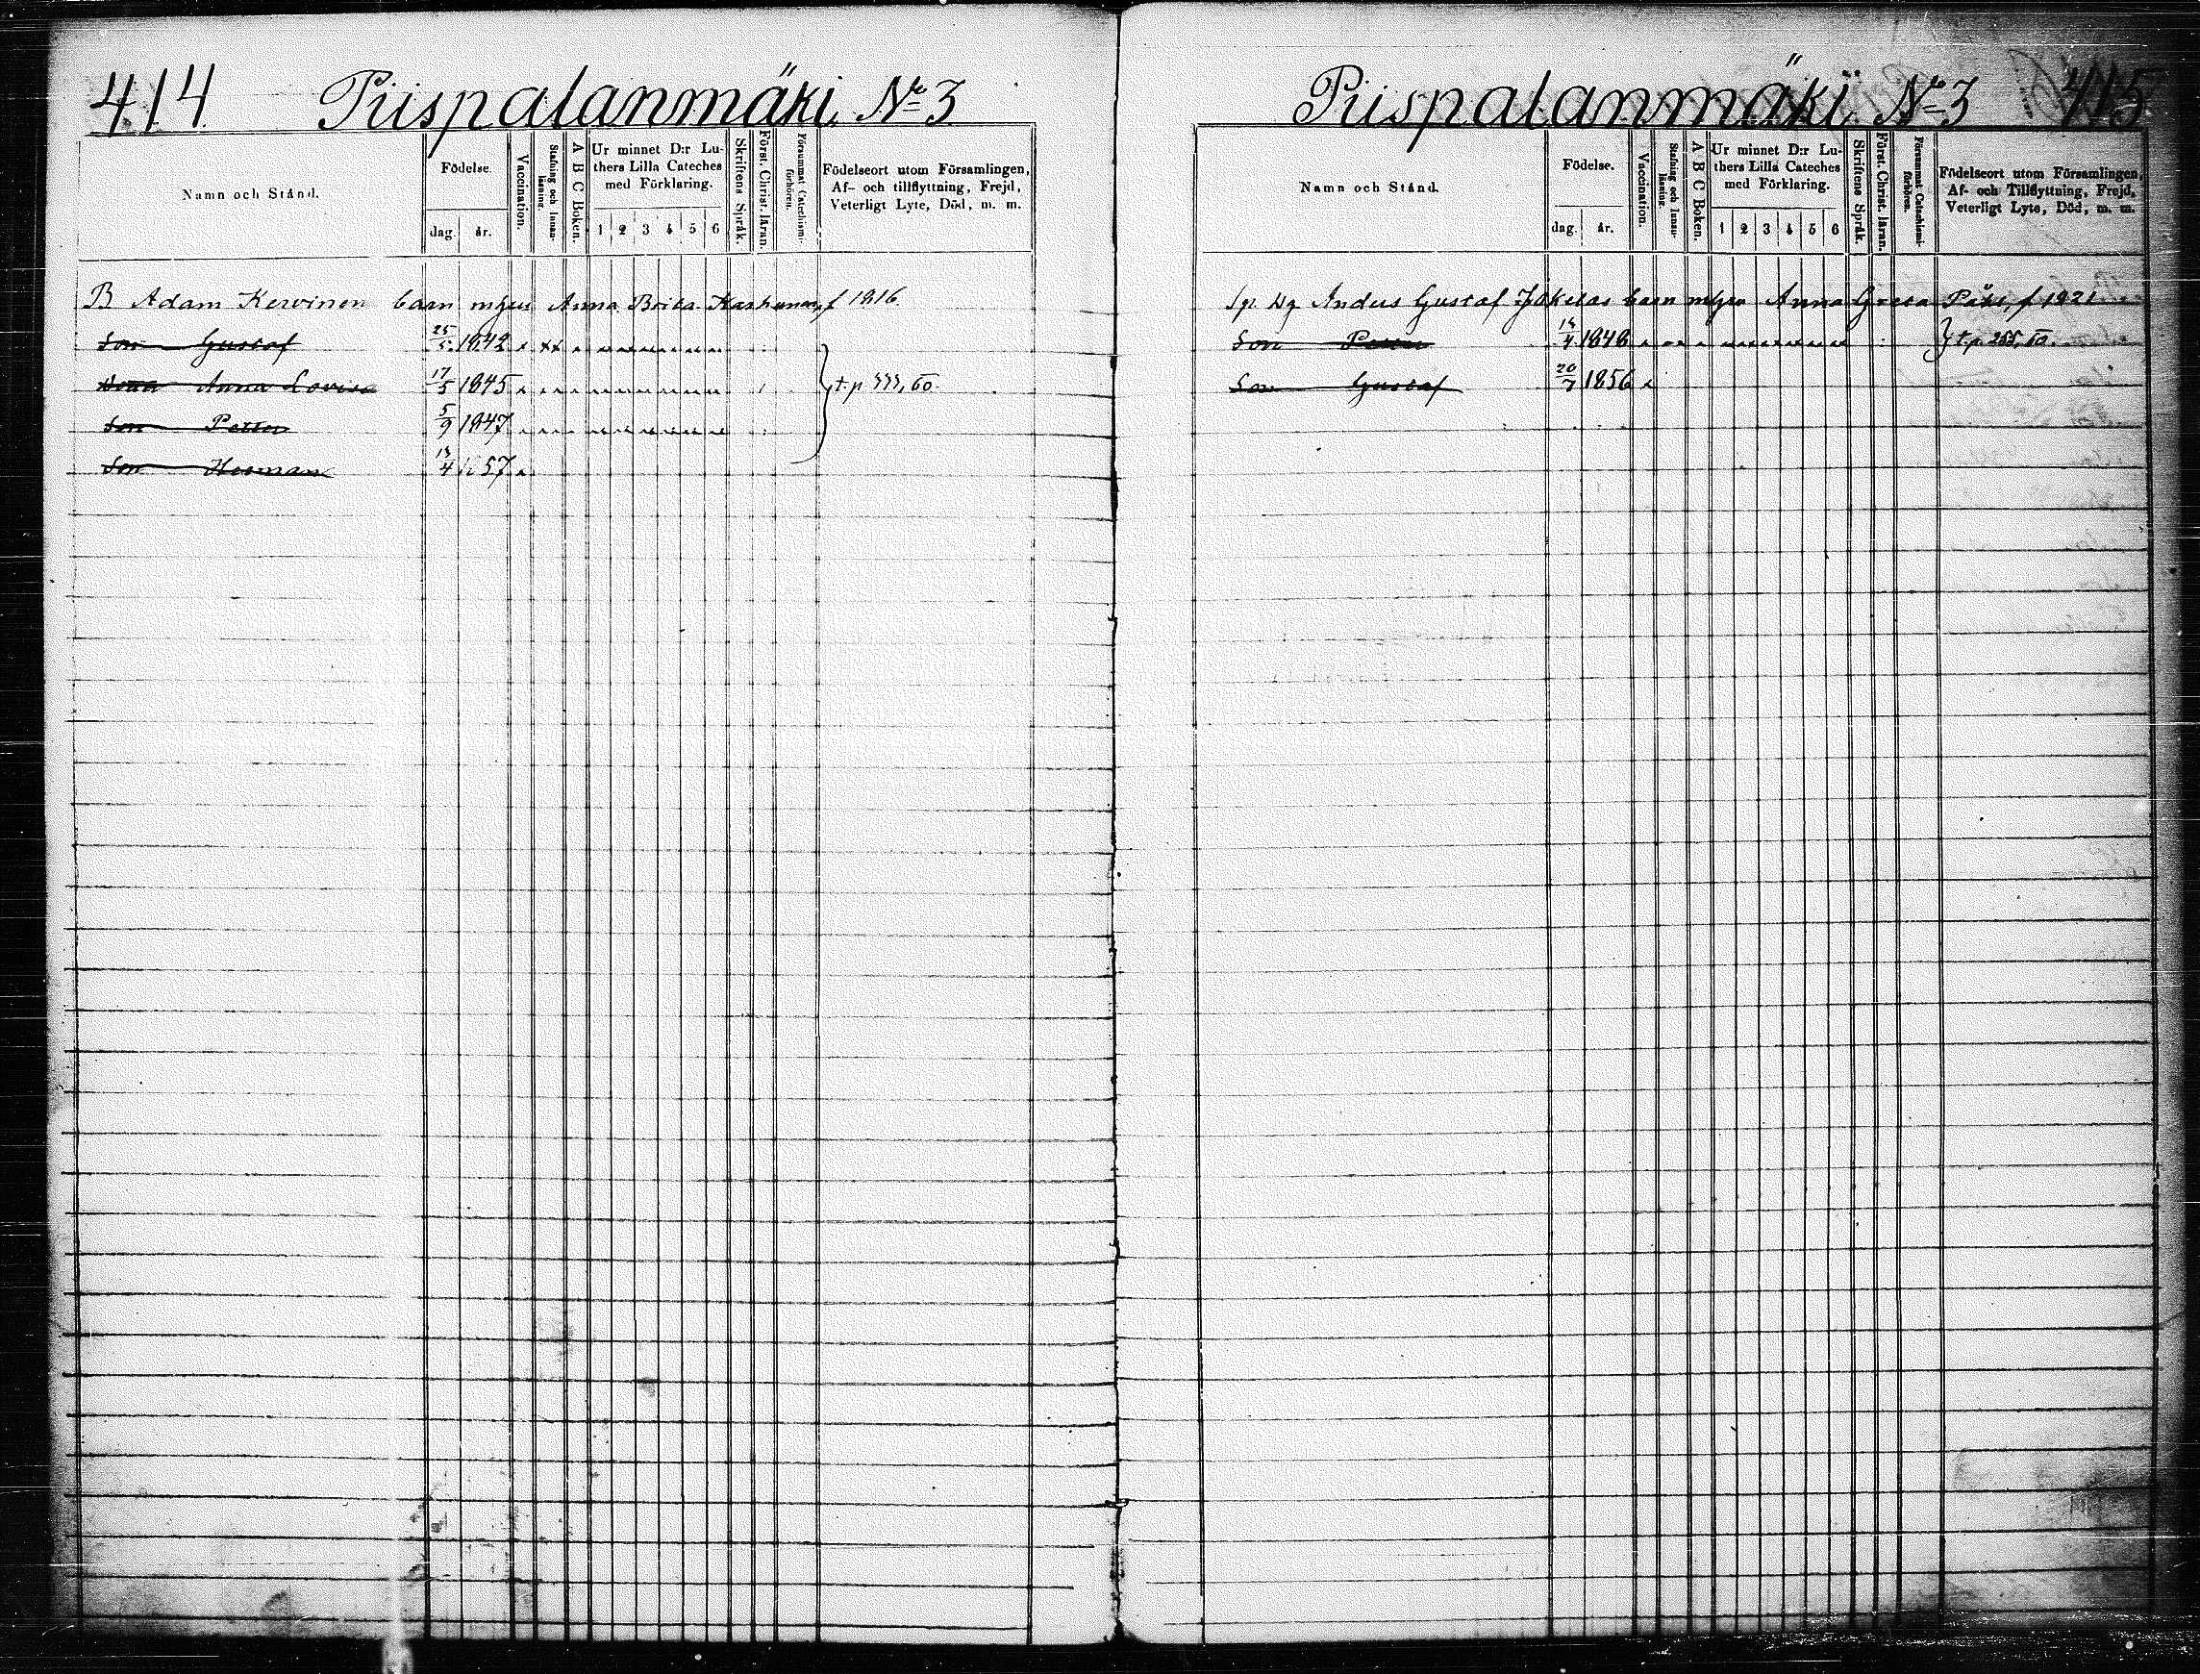 414 Piispalanmäki № 3
Namn och Stånd.
Födelse.
dag. år.
Vaccination.
Stafning och Innan-läsning.
A B C Boken.
Ur minnet D:r Lu-
thers Lilla Cateches
med Förklaring.
1 2 3 4 5 6
Skriftens Språk.
Först. Christ. läran.
Försummat Catechismi-förhören.
Födelseort utom Församlingen,
Af- och tillflyttning, Frejd,
Veterligt Lyte, Död, m. m.
B Adam Kervinen barn m Anna Brita f 1816.
Son Gustaf 25/5 1842
Anna Lovisa 17/5 1845 t.p. 60.
Son Petter 5/9 1847
Son Herman 13/4 1857
Piispalanmäki № 3 415
Namn och Stånd.
Födelse.
dag. år.
Vaccination.
Stafning och Innan-läsning.
A B C Boken.
Ur minnet D:r Lu-
thers Lilla Cateches
med Förklaring.
1 2 3 4 5 6
Skriftens Språk.
Först. Christ. läran.
Försummat Catechismi-förhören.
Födelseort utom Församlingen,
Af- och Tillflyttning, Frejd,
Veterligt Lyte, Död, m. m.
Anders Gustaf barn Anna Greta f 1821
Son Petter 1848 t.p. 255, 60.
Son Gustaf 20/7 1856